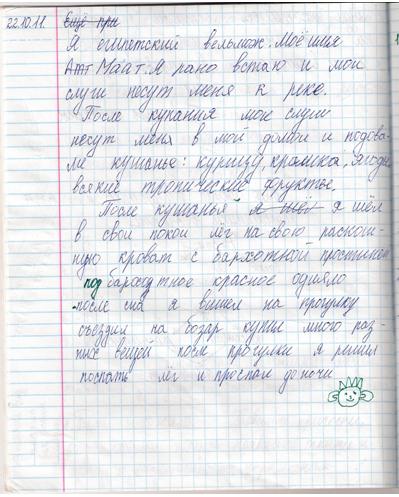 22.10.11. Ещё при
Я египетский вельмож. Моё имя
Амт Маат. Я рано встаю и мои
слуги несут меня к реке.
После купания мои слуги
несут меня в мой домой и подова-
ли кушанье: курицу, кролика, ягоды
всякие тропические фруктые.
После кушанья я шёл я шёл
в свои покои лёг на свою раскош-
ную кроват с бархотной простыней
под бархутное красное одияло
после сна я вышел на прогулку
съездил на бозар купил много раз-
ных вещой после прогулки я решил
поспать лёг и проспал до ночи